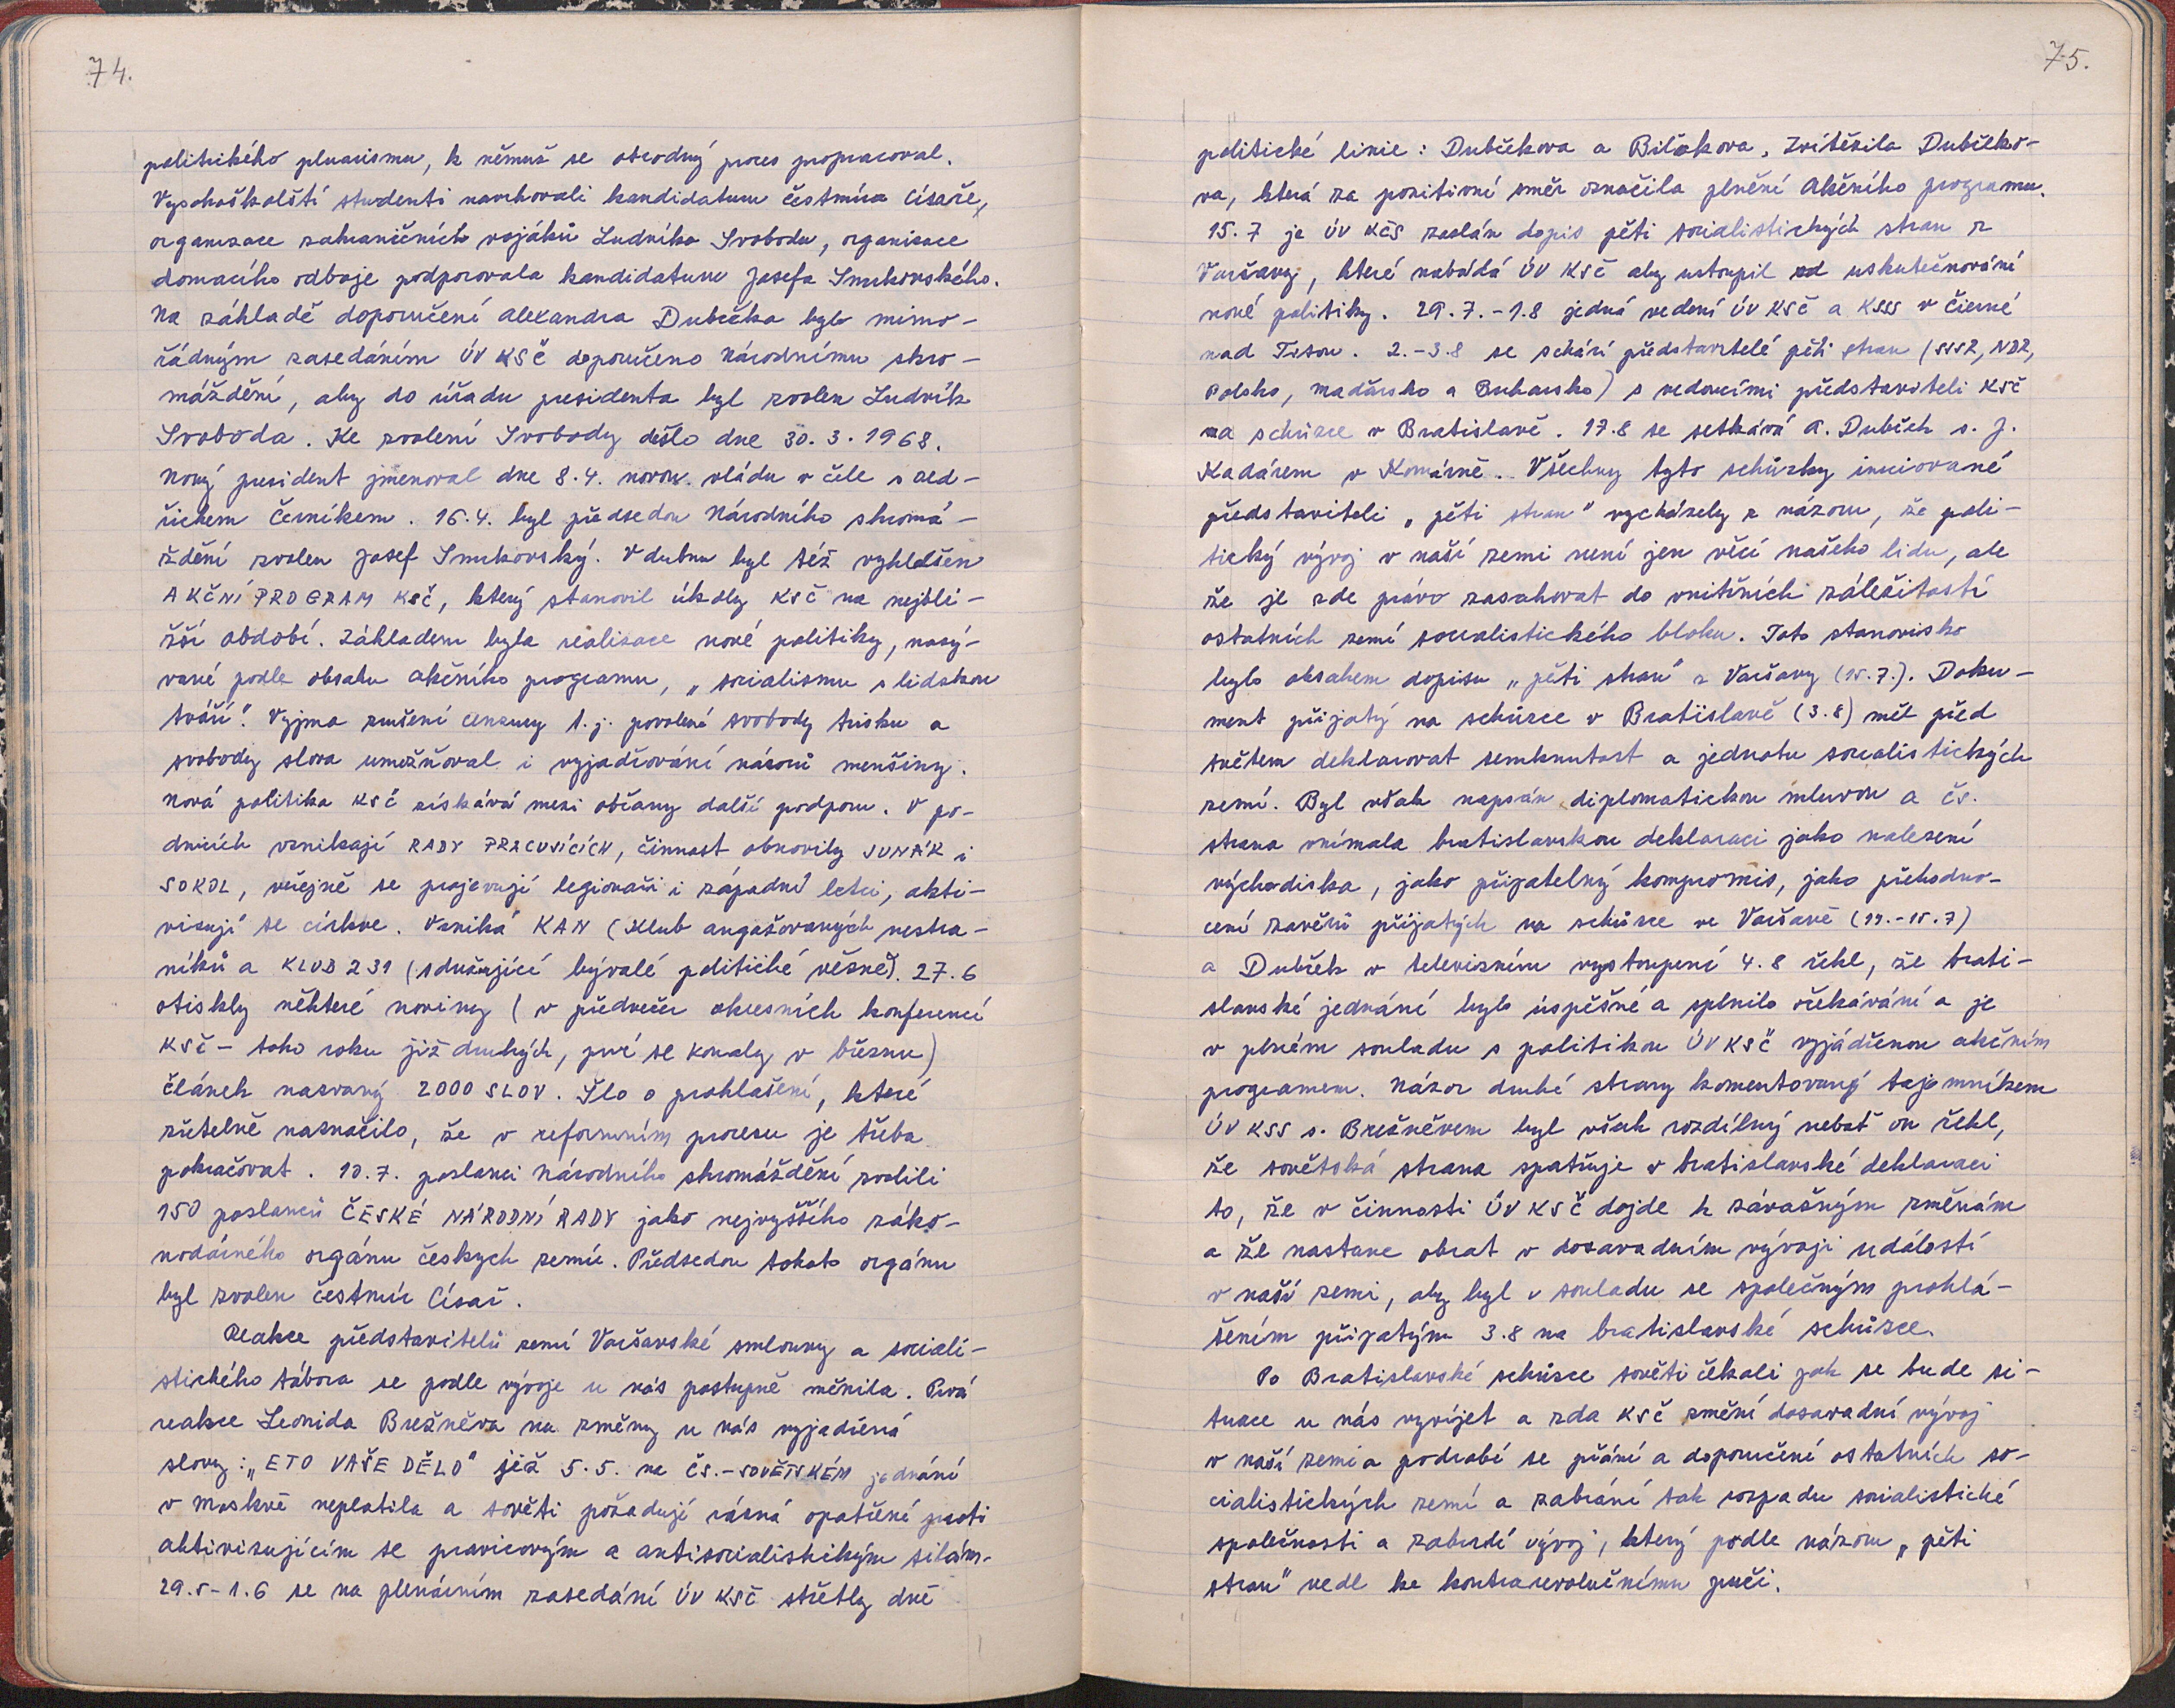 74.
politického pluarismu, k němuž se obrodný proces propracoval.
Vysokoškolští studenti navrhovali kandidaturu čestmíra Císaře,
organizace zahraničních vojáků Ludvíka Svobodu, organizace
domacího odboje podporovala kandidaturu Josefa Smrkovského.
Na základě doporučení Alexandra Dubčeka bylo mimo-
řádným zasedáním ÚV KSČ doporučeno Národnímu shro-
máždění, aby do úřadu presidenta byl zvolen Ludvík
Svoboda. Ke zvolení Svobody došlo dne 30.3.1968.
Nový president jmenoval dne 8.4. novou vládu v čele s Old-
řichem Černíkem. 16.4. byl předsedou Národního shromá-
ždění zvolen Josef Smrkovský. V dubnu byl též vyhlášen
AKČNÍ PROGRAM KSČ, který stanovil úkoly KSČ na nejbli-
žší období. Základem byla realizace nové politiky, nazý-
vané podle obsahu akčního programu, „socialismu s lidskou
tváří". Vyjma zrušení cenzury t.j. povolení svobody tisku a
svobody slova umožňoval i vyjadřování názorů menšiny.
Nová politika KSČ získává mezi občany další podporu. V po-
dnicích vznikají RADY PRACUJÍCÍCH, činnost obnovily JUNÁK i
SOKOL, veřejně se projevují legionáři i západní letci, akti-
vizují se církve. Vzniká KAN (Klub angažovaných nestra-
níků a KLUB 231 (sdružující bývalé politické vězně). 27.6
otiskly některé noviny (v předvečer okresních konferencí
KSČ – toho roku již druhých, prvé se konaly v březnu)
článek nazvaný 2000 SLOV. Šlo o prohlášení, které
zřetelně naznačilo, že v reformním procesu je třeba
pokračovat. 10.7. poslanci Národního shromáždění zvolili
150 poslanců ČESKÉ NÁRODNÍ RADY jako nejvyššího záko-
nodárného orgánu českych zemíc. Předsedou tohoto orgánu
byl zvolen čestmír Císař.
Reakce představitelů zemí Varšavské smlouvy a sociali-
stického tábora se podle vývoje u nás postupně měnila. Prvá
reakce Leonida Brežněva na změny u nás vyjadřená
slovy: „ETO VAŠE DĚLO" již 5.5. na ČS.-SOVĚTSKÉM jednání
v Moskvě neplatila a sověti požadují rázná opatření proti
aktivizujícím se pravicovým a antisocialistickým silám.
29.5-1.6 se na plenárním zasedání ÚV KSČ střetly dvě
75.
politické linie: Dubčekova a Bilakova, Zvítězila Dubčeko-
va, která za pozitivní směr označila plnění Akčního programu.
15.7 je ÚV KČS zaslán dopis pěti socialistických stran z
Varšavy, které nabádá ÚV KSČ aby ustoupil od uskutečnování
nové politiky. 29.7.-1.8 jedná vedení ÚV KSČ a KSSS v Čierné
nad Tisou. 2.-3.8 se schází představitelé pěti stran (SSSR, NDR,
Polsko, Maďarsko a Bulharsko) s vedoucími představiteli KSČ
na schůzce v Bratislavě. 17.8 se setkává A. Dubček s. J.
Kadárem v Komárně.. Všechny tyto schůzky iniciované
představiteli „pěti stran" vycházely z názoru, že poli-
tický vývoj v naší zemi není jen věcí našeho lidu, ale
že je zde právo zasahovat do vnitřních záležitostí
ostatních zemí socialistického bloku. Toto stanovisko
bylo obsahem dopisu „pěti stran" z Varšavy (15.7.). Doku-
ment přijatý na schůzce v Bratislavě (3.8) měl před
světem deklarovat semknutost a jednotu socialistických
zemí. Byl však napsán diplomatickou mluvou a čs.
strana vnímala bratislavskou deklaraci jako nalezení
východiska, jako přijatelný kompromis, jako přehodno-
cení závěrů přijatých na schůzce ve Varšavě (14.-15.7)
a Dubček v televizním vystoupení 4.8 řekl, že brati-
slavské jednání bylo úspěšné a splnilo očekávání a je
v plném souladu s politikou ÚV KSČ vyjádřenou akčním
programem. Názor druhé strany komentovaný tajemníkem
ÚV KSS s. Brežněvem byl však rozdílný neboť on řekl,
že sovětská strana spatřuje v bratislavské deklaraci
to, že v činnosti ÚV KSČ dojde k závažným změnám
a že nastane obrat v dosavadním vývoji událostí
v naší zemi, aby byl v souladu se společným prohlá-
šením přijatým 3.8 na bratislavské schůzce.
Po Bratislavské schůzce sověti čekali jak se bude si-
tuace u nás vyvíjet a zda KSČ změní dosavadní vývoj
v naší zemi a podrobí se přání a doporučení ostatních so-
cialistických zemí a zabrání tak rozpadu socialistické
společnosti a zabrzdí vývoj, který podle názoru „pěti
stran" vedl ke kontrarevolučnímu puči.